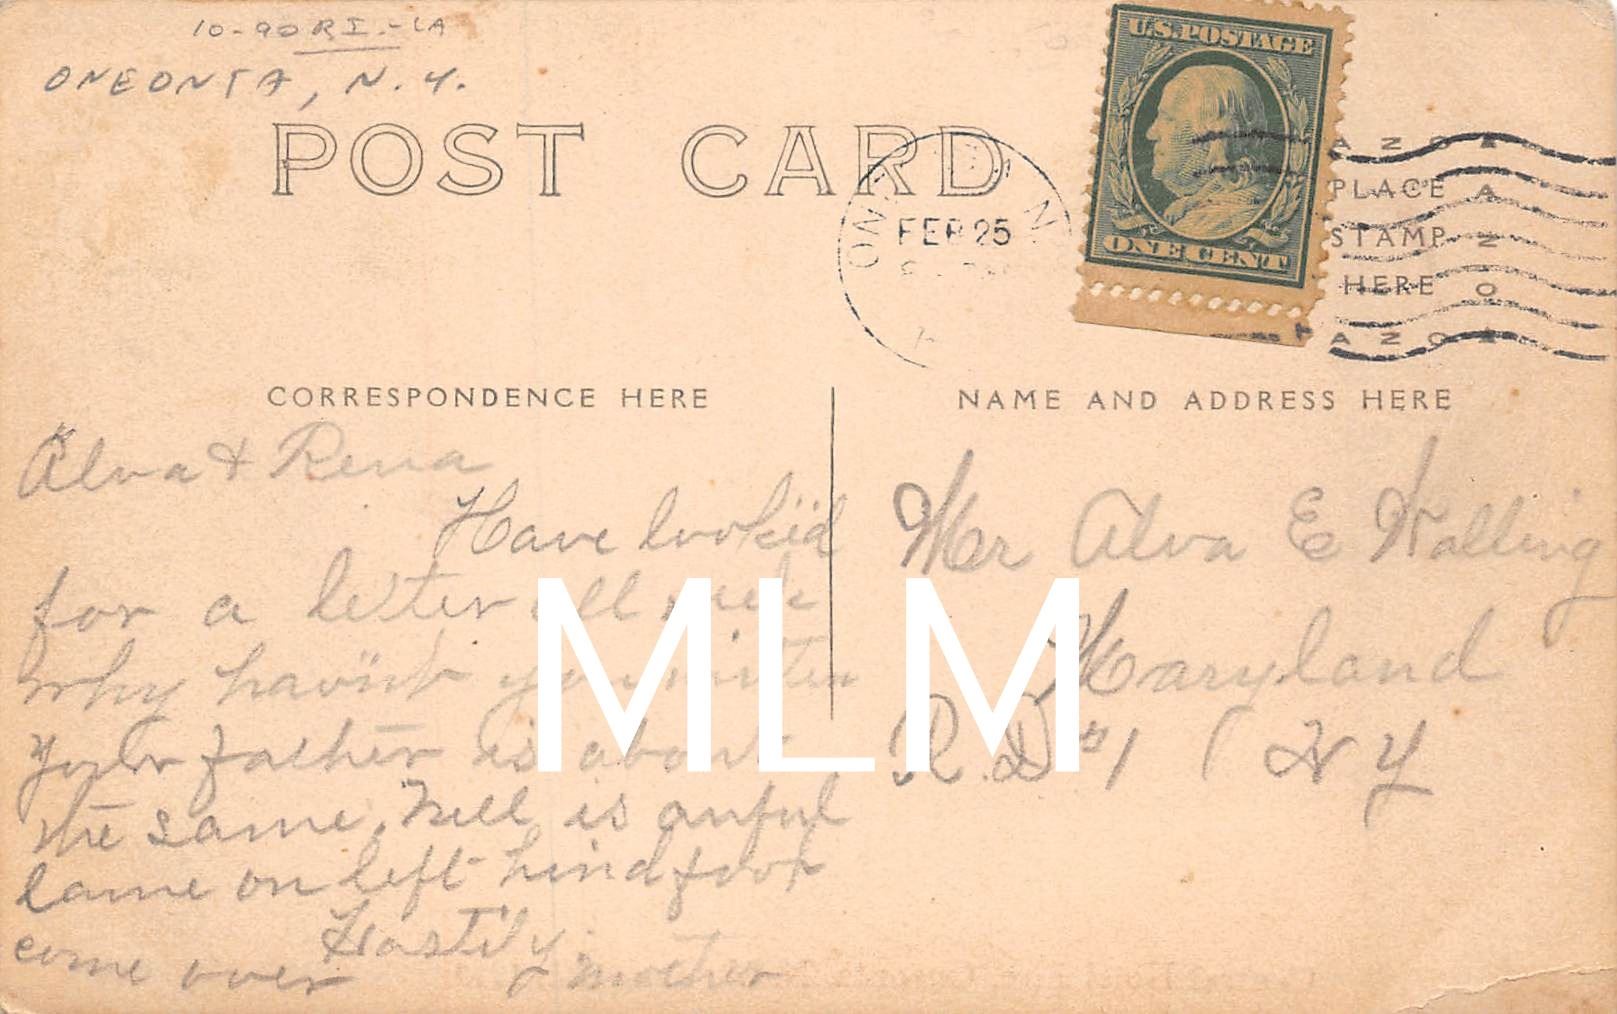 10-90 RI.-LA
ONEONTA, N.Y.
POST CARD
U.S. POSTAGE
ONE CENT
FEB 25
AZO
PLACE
STAMP
HERE
AZO
CORRESPONDENCE HERE
NAME AND ADDRESS HERE
Alva & Rena
Have looked
for a letter all
why havint you
your father is about
the same. Nell is anful
lame on left hind foot
come over Hastily
mother
Mr Alva E Walling
Maryland
R.D #1 N Y
MLM